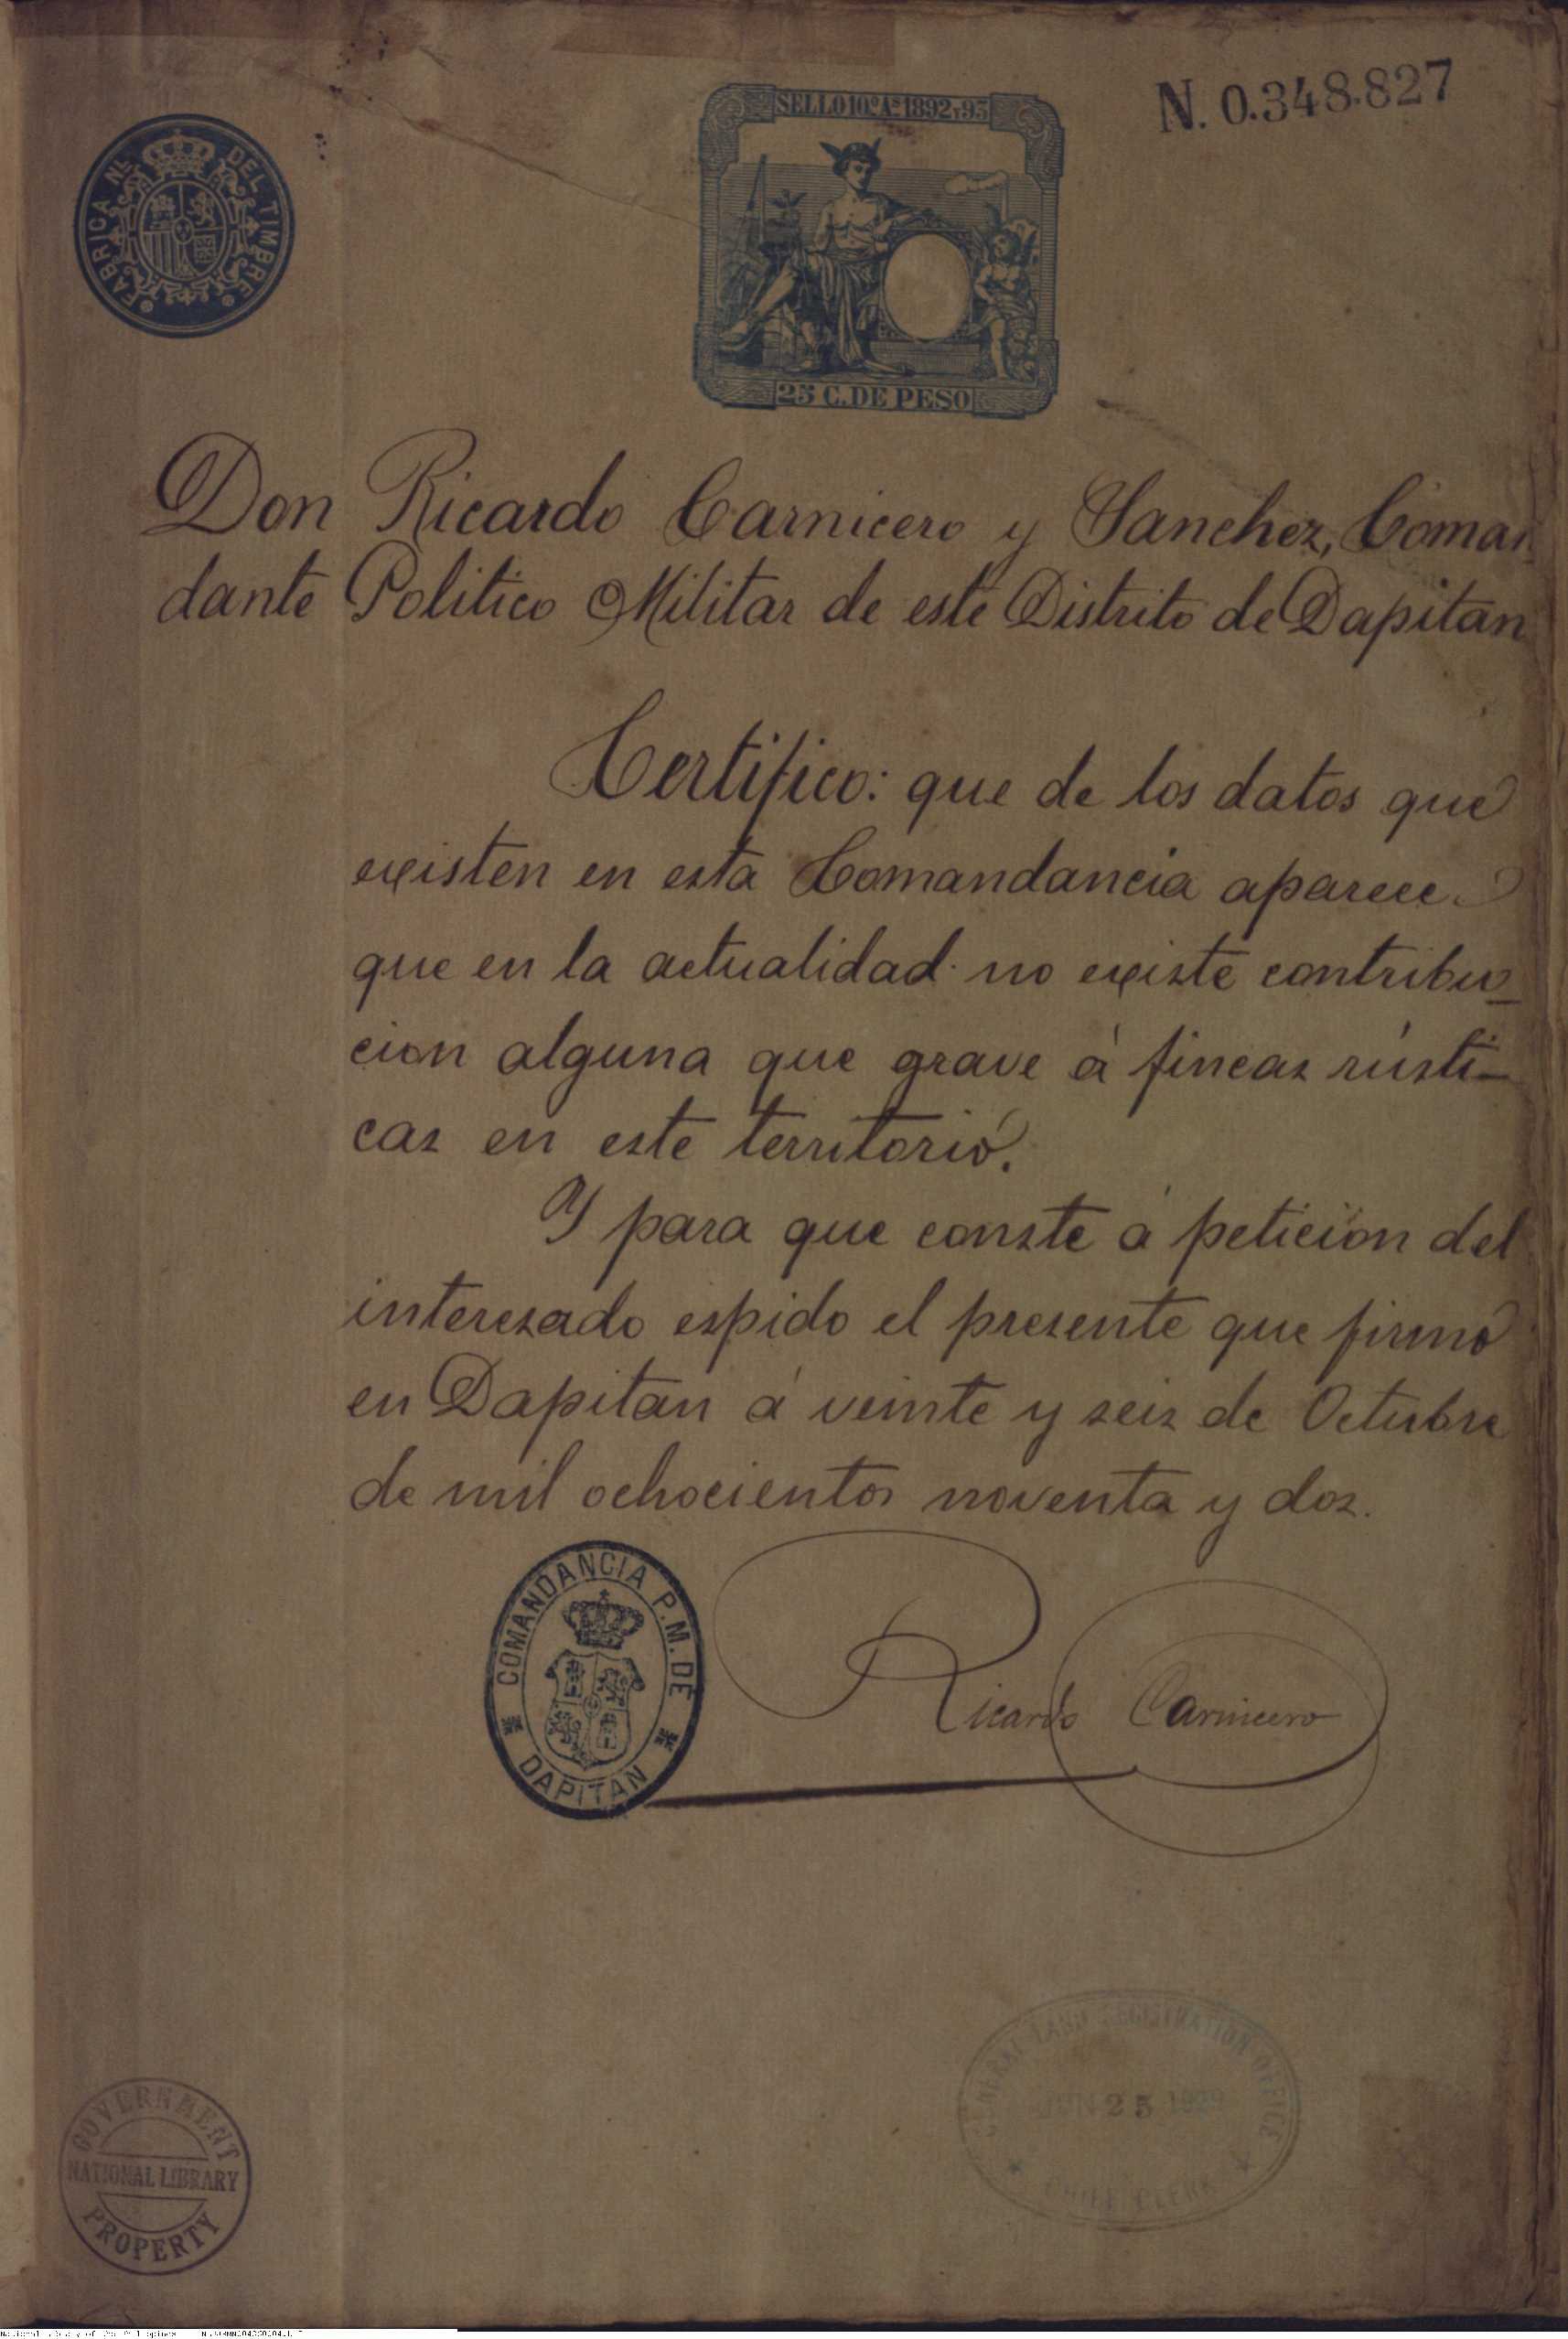 N. 0.348.827
SELLO 10º Aº 1892 Y 93
FABRICA NL. DEL TIMBRE
25 C. DE PESO
Don Ricardo Carnicero y Sanchez, Coman
dante Politico Militar de este Distrito de Dapitan
Certifico: que de los datos que
existen en esta Comandancia aparece
que en la actualidad no existe contribu-
cion alguna que grave á fincas rústi-
cas en este territorio.
Y para que conste á peticion del
interesado espido el presente que firmo
en Dapitan á veinte y seis de Octubre
de mil ochocientos noventa y dos.
COMANDANCIA P. M. DE
DAPITAN
Ricardo Carnicero
GENERAL LAND REGISTRATION OFFICE
25
CHIEF CLERK
GOVERNMENT
NATIONAL LIBRARY
PROPERTY